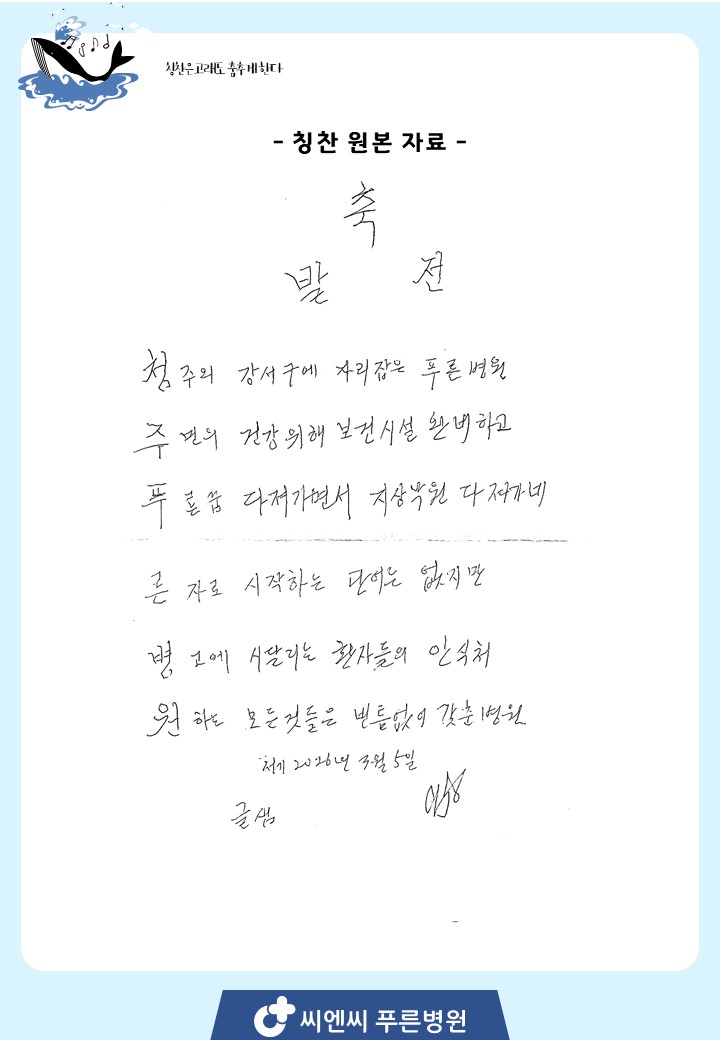 칭찬은 고래도 춤추게 한다
- 칭찬 원본 자료 -
축
발 전
청주의 강서구에 자리잡은 푸른병원
주변의 건강위해 보건시설 완비하고
푸른꿈 다져가면서 지상낙원 다져가네
른 자로 시작하는 단어는 없지만
병고에 시달리는 환자들의 안식처
원하는 모든것들은 빈틈없이 갖춘병원
2026년 3월 5일
글샘
씨엔씨 푸른병원